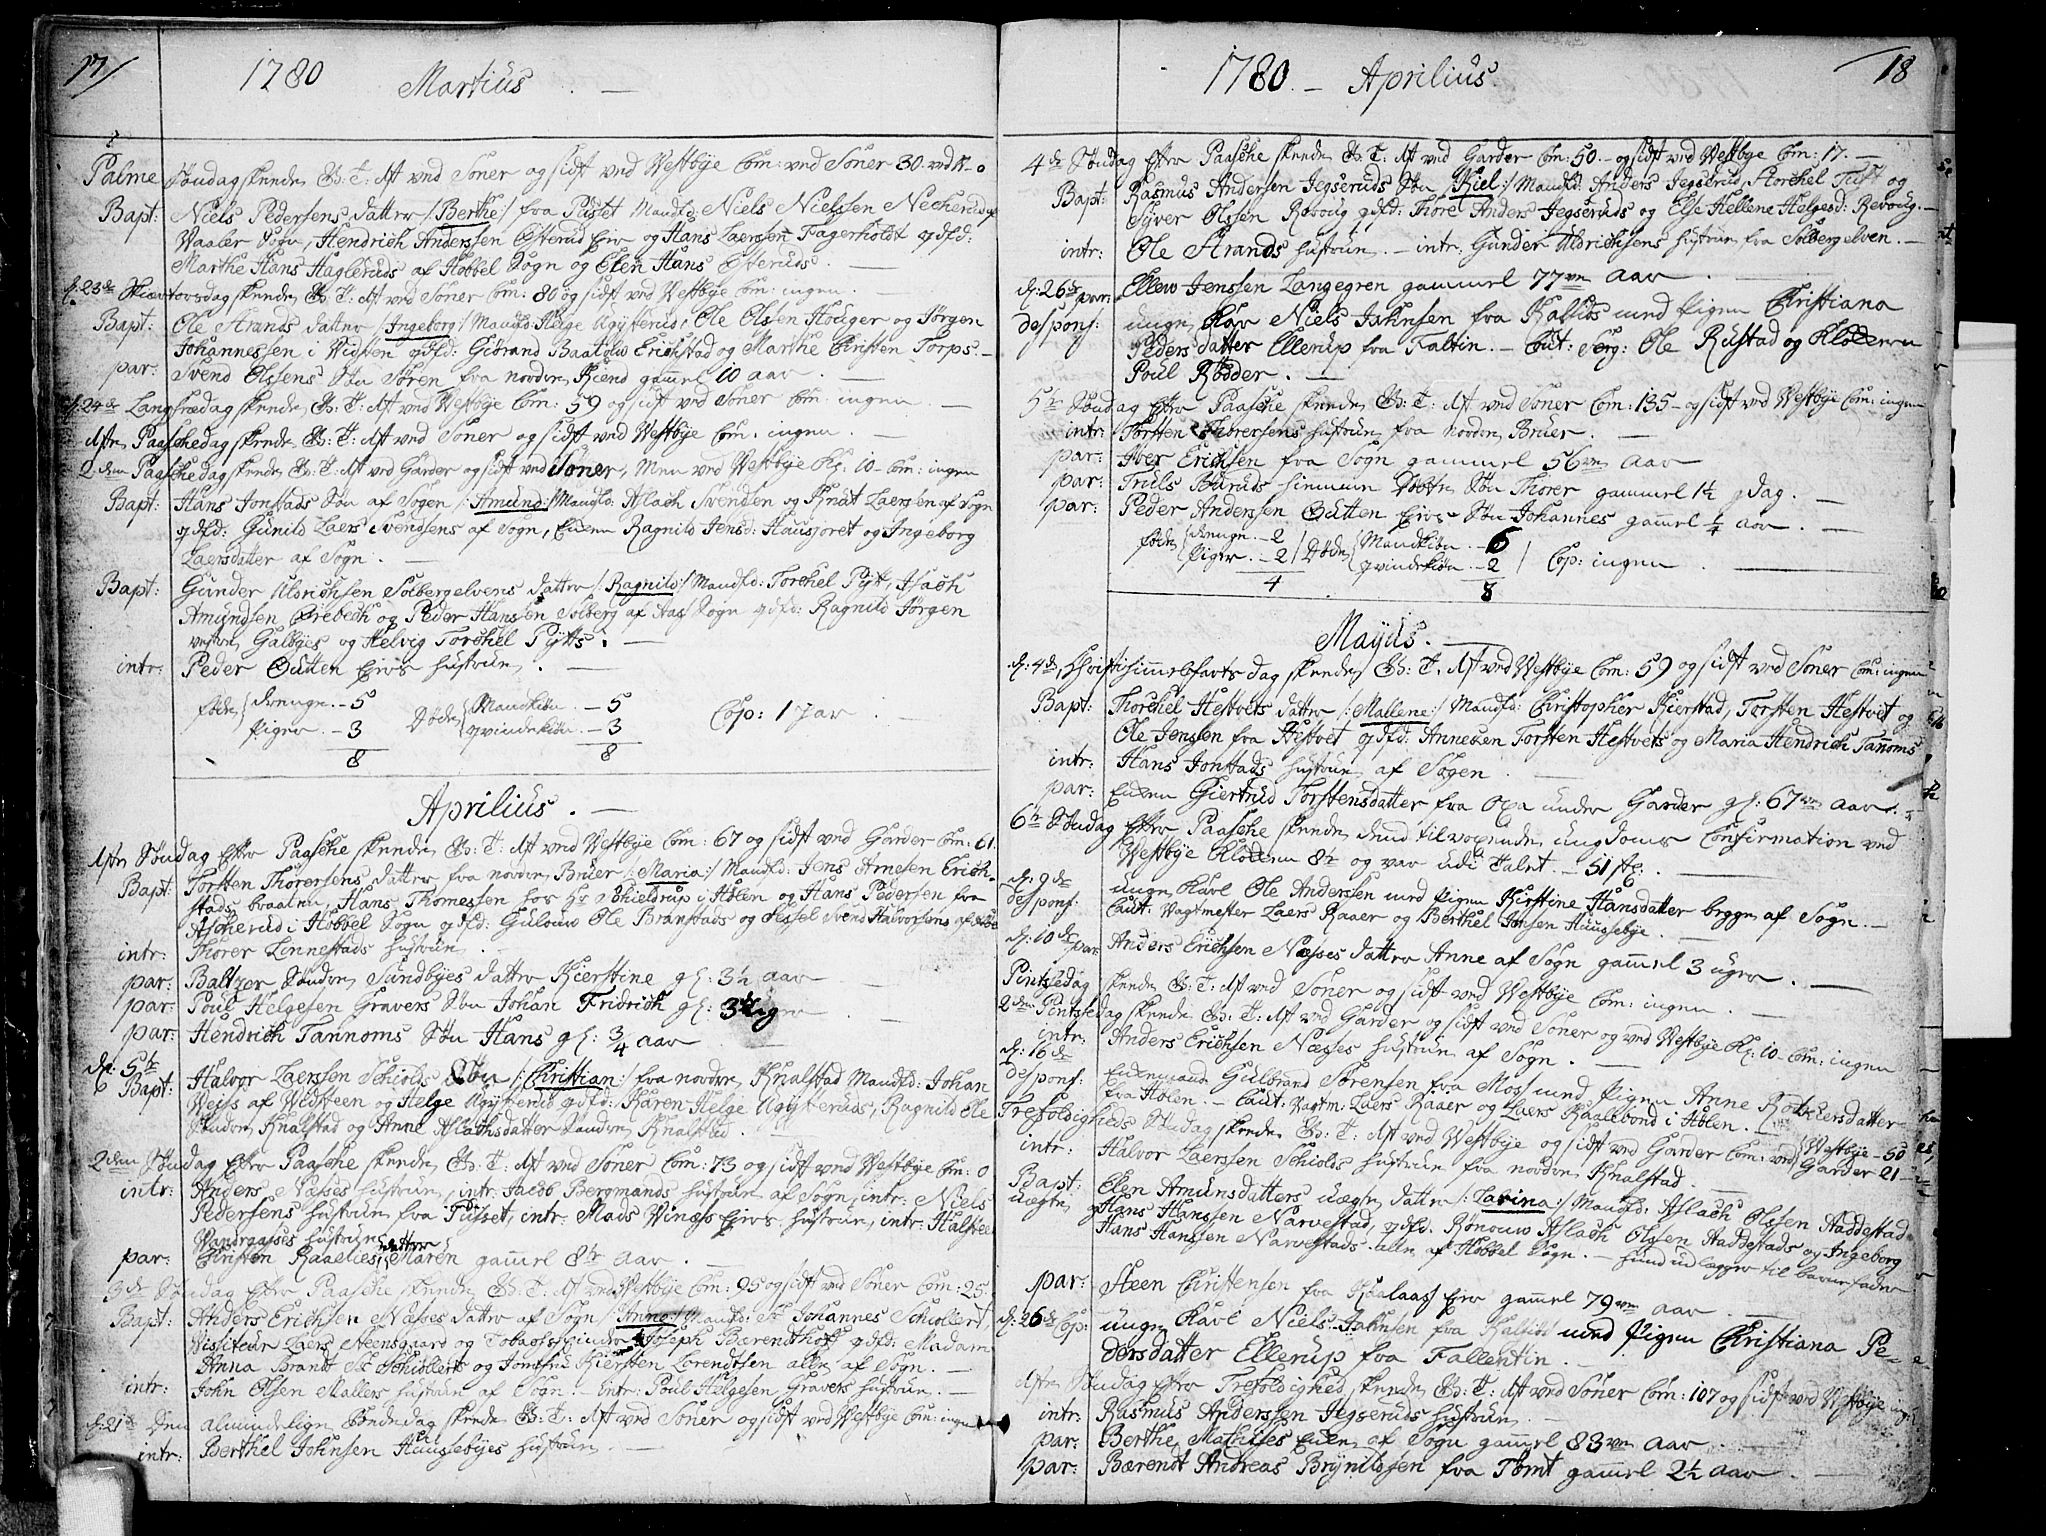 17/
1780 Martius. —
Palme Søndag skeede G: T: Aft ved Soner og sidst ved Westbye Com: ved Soner 30 ved W-0
Bapt: Niels Pedersens datter /:Berthe:/ fra Tusset Mandfd: Niels Nielssen Necherud af
Waaler Sogn, Hendrich Anderssen Østerud Eier og Hans Laerssen Fagerholdt qdfd:
Marthe Hans Hagleruds af Hobbel Sogn og Elen Hans Østeruds. —
d: 23de Skiærtorsdag skeede G: T: Aft ved Soner Com: 80 og sidst ved Westbye Com: ingen —
Bapt: Ole Strands datter /:Ingeborg:/ Mandfd: Helge Agysterud, Ole Olssen Houger og Jørgen
Johannessen i Widsten qdfd: Giørand Baatolv Erichstad og Marthe Christen Torps. —
par: Svend Olssens Søn Søren fra nordre Kiend gaml 10 aar. —
d: 24de Langfredag skeede G: T: Aft ved Westbye Com: 59 og sidst ved Soner Com: ingen —
1ste Paaschedag skeede G: T: Aft ved Soner og sidst ved Westbye Com: ingen. —
2den Paaschedag skeede G: T: Aft ved Garder og sidst ved Soner, Men ved Westbye Kl: 10 - Com: ingen
Bapt: Hans Jonstads Søn af Sogen /:Amund:/ Mandfd: Aslach Svendsen og Knut Laerssen af Sogn
qdfd: Gunild Laers Svendsens af Sogn, Enken Ragnild Jensd: Hausjoret og Ingeborg
Laersdatter af Sogn. —
Bapt: Gunder Uldrichsen Solbergelvens datter /:Ragnild:/ Mandfd: Torchel Pytt, Aslach
Amundsen Krebech og Peder Hanssen Solberg af Aas Sogn qdfd: Ragnild Jørgen
vestre Galbyes og Helvig Torchel Pytts. —
intr: Peder Gutten Eiers hustrue. —
føde { drenge - 5 Døde { Mandkiøn - 5 Cop: 1 par. —
Piger - 3 qvindekiøn - 3
8 8
Aprilius. —
1ste Søndag Efter Paasche skeede G: T: Aft ved Westbye Com: 67 og sidst ved Garder Com: 61.
Bapt: Torsten Thorersens datter fra nordre Bruer /:Maria:/ Mandfd: Jens Arnesen Erich-
stads braaten, Hans Thomessen hos Hr Schieldrup i Hølen og Hans Pedersen fra
Ascherud i Hobbel Sogn qdfd: Gulouw Ole Branstads og Sessel Svend Halvorsens af
intr: Thorer Linnestads hustrue.
par: Baltzer Søndre Sundbyes datter Kierstine gl: 3½ aar —
par: Poul Helgesen Gravers Søn Johan Fridrich gl: 3 uger —
par: Hendrich Tannoms Søn Hans gl: ¾ aar —
d: 5te Bapt: Halvor Laerssen Schiolds Søn /:Christian:/ fra nordre Knalstad Mandfd: Johan
Weiss af Widsteen og Helge Agysterud qdfd: Karen Helge Agysteruds, Ragnild Ole
Søndre Knalstad og Anne Aslachsdatter Søndre Knalstad. —
2den Søndag Efter Paasche skeede G: T: Aft ved Soner Com: 73 og sidst ved Westbye Com: 0
intr: Anders Næsses hustrue, intr: Jacob Bergmands hustrue af Sogn, intr: Niels
Pedersens hustrue fra Tusset, intr: Mads Vinæss Eiers hustrue, intr: Halsteen
Wandrgasses hustrue
par: Christen Raaelies datter Maren gamel 8½ aar. —
3de Søndag Efter Paasche skeede G: T: Aft ved Westbye Com: 95 og sidst ved Soner Com: 25.
Bapt: Anders Erichsen Næsses datter af Sogn /:Anne:/ Mandfd: Sr Johannes Schiollert,
Wissiteur Laers Steensgaard og Tobachsspinder Joseph Bærendthoff qdfd: Madam
Anna Brandt Sr Schiollerts og Jomfrue Kiersten Lorendtsen alle af Sogn. —
intr: John Olsen Mallers hustrue af Sogn. — intr: Poul Helgesen Gravers hustrue. —
d: 21de Den almindelige Bededag skeede G: T: Aft ved Soner og sidst ved Westbye Com: ingen
intr: Berthel Johnsen Huussebyes hustrue. —
1780. — Aprilius. 18
4de Søndag Efter Paasche skeede G: T: Aft ved Garder Com: 50 - og sidst ved Westbye Com: 17. —
Bapt: Rasmus Andersen Jegseruds Søn /:Kiel:/ Mandfd: Anders Jegserud, Storchel Tuft og
Syver Olssen Revoug qdfd: Thore Anders Jegseruds og Else Hellene Helgesd: Revoug. —
intr: Ole Strands hustrue. — intr: Gunder Uldrichsens hustrue fra Solbergelven. —
d: 26de par: Ellew Jenssen Langegren gammel 77ve aar. —
desponf: unge Karl Niels Johnsen fra Kalsiøs med Pigen Christiana
Peders datter Ellerup fra Faltin. — Caut: Serg: Ole Rustad og Klocheren
Poul Rødder. —
5te Søndag Efter Paasche skeede G: T: Aft ved Soner Com: 135 - og sidst ved Westbye Com: ingen
intr: Torsten Thorersens hustrue fra nordre Bruer. —
par: Iver Erichsen fra Sogn gammel 56ve aar
par: Truls Buruds hiemme døbte Søn Thorer gammel 1½ dag. —
par: Peder Anderssen Gutten Eiers Søn Johannes gamel ¼ aar. —
føde { drenge - 2 / Døde { Mandkiøn - 6 / Cop: ingen. —
Piger - 2 qvindekiøn - 2
4 8
Mayus. —
d: 4de, Christi himmelfarts dag skeede G: T: Aft ved Westbye Com: 59 og sidst ved Soner Com: ingen
Bapt: Thorchel Hestvets datter /:Mallene:/ Mandfd: Christopher Kierstad, Torsten Hestvet og
Ole Jenssen fra Hestvet qdfd: Anneken Torsten Hestvets og Maria Hendrich Tannoms
intr: Hans Jonstads hustrue af Sogen. —
par: Enken Giertrud Torstensdatter fra Oxa under Garder gl: 67ve aar.
6te Søndag Efter Paasche skeede dend tilvoxende ungdoms Confirmation ved
Westbye Klochen 8½ og var udi Talet - 51 st: —
d: 9de desponf: unge Karl Ole Anderssen med Pigen Kirstine Hansdatter begge af Sogn. —
Caut: Wagtmester Laers Raaer og Berthel Jonsen Huussebye. —
d: 10de par: Anders Erichsen Næsses datter Anne af Sogn gamel 3 uger. —
Pintsedag skeede G: T: Aft ved Soner og sidst ved Westbye Com: ingen. —
2den Pintsedag skeede G: T: Aft ved Garder og sidst ved Soner og ved Westbye Kl: 10 - Com: ingen
intr: Anders Erichsen Næsses hustrue af Sogn. —
d: 16de desponf: Enkemand Gulbrand Sørensen fra Moss med Pigen Anne Rolversdatter
fra Hølen. — Caut: Wagtm: Laers Raaer og Laers Kaalebond i Hølen. —
Trefoldigheds Søndag skeede G: T: Aft ved Westbye og sidst ved Garder Com: ved { Westbye - 50
Garder 21 —
intr: Halvor Laerssen Schiolds hustrue fra nordre Knalstad. —
Bapt: uægte Elen Amunsdatters uægte datter /:Larina:/ Mandfd: Aslach Olssen Haddestad
og Hans Hanssen Narvestad, qdfd: Rønouw Aslach Olssen Haddestads og Ingeborg
Hans Hanssen Narvestads alle af Hobbel Sogn. — hund udlægger til barnefader
par: Steen Christensen fra Kaalaas Eier gammel 79ve aar —
d: 26de Cop: unge Karl Niels Johnsen fra Kalsiøs med Pigen Christiana Pe-
dersdatter Ellerup fra Fallentin. —
1ste Søndag Efter Trefoldighed skeede G: T: Aft ved Soner Com: 107 og sidst ved Westbye
intr: Rasmus Anderssen Jegseruds hustrue. —
par: Berthe Mathises Enke af Sogn gamel 83ve aar —
par: Bærendt Andreas Brynildssen fra Tomt gamel 2½ aar. —